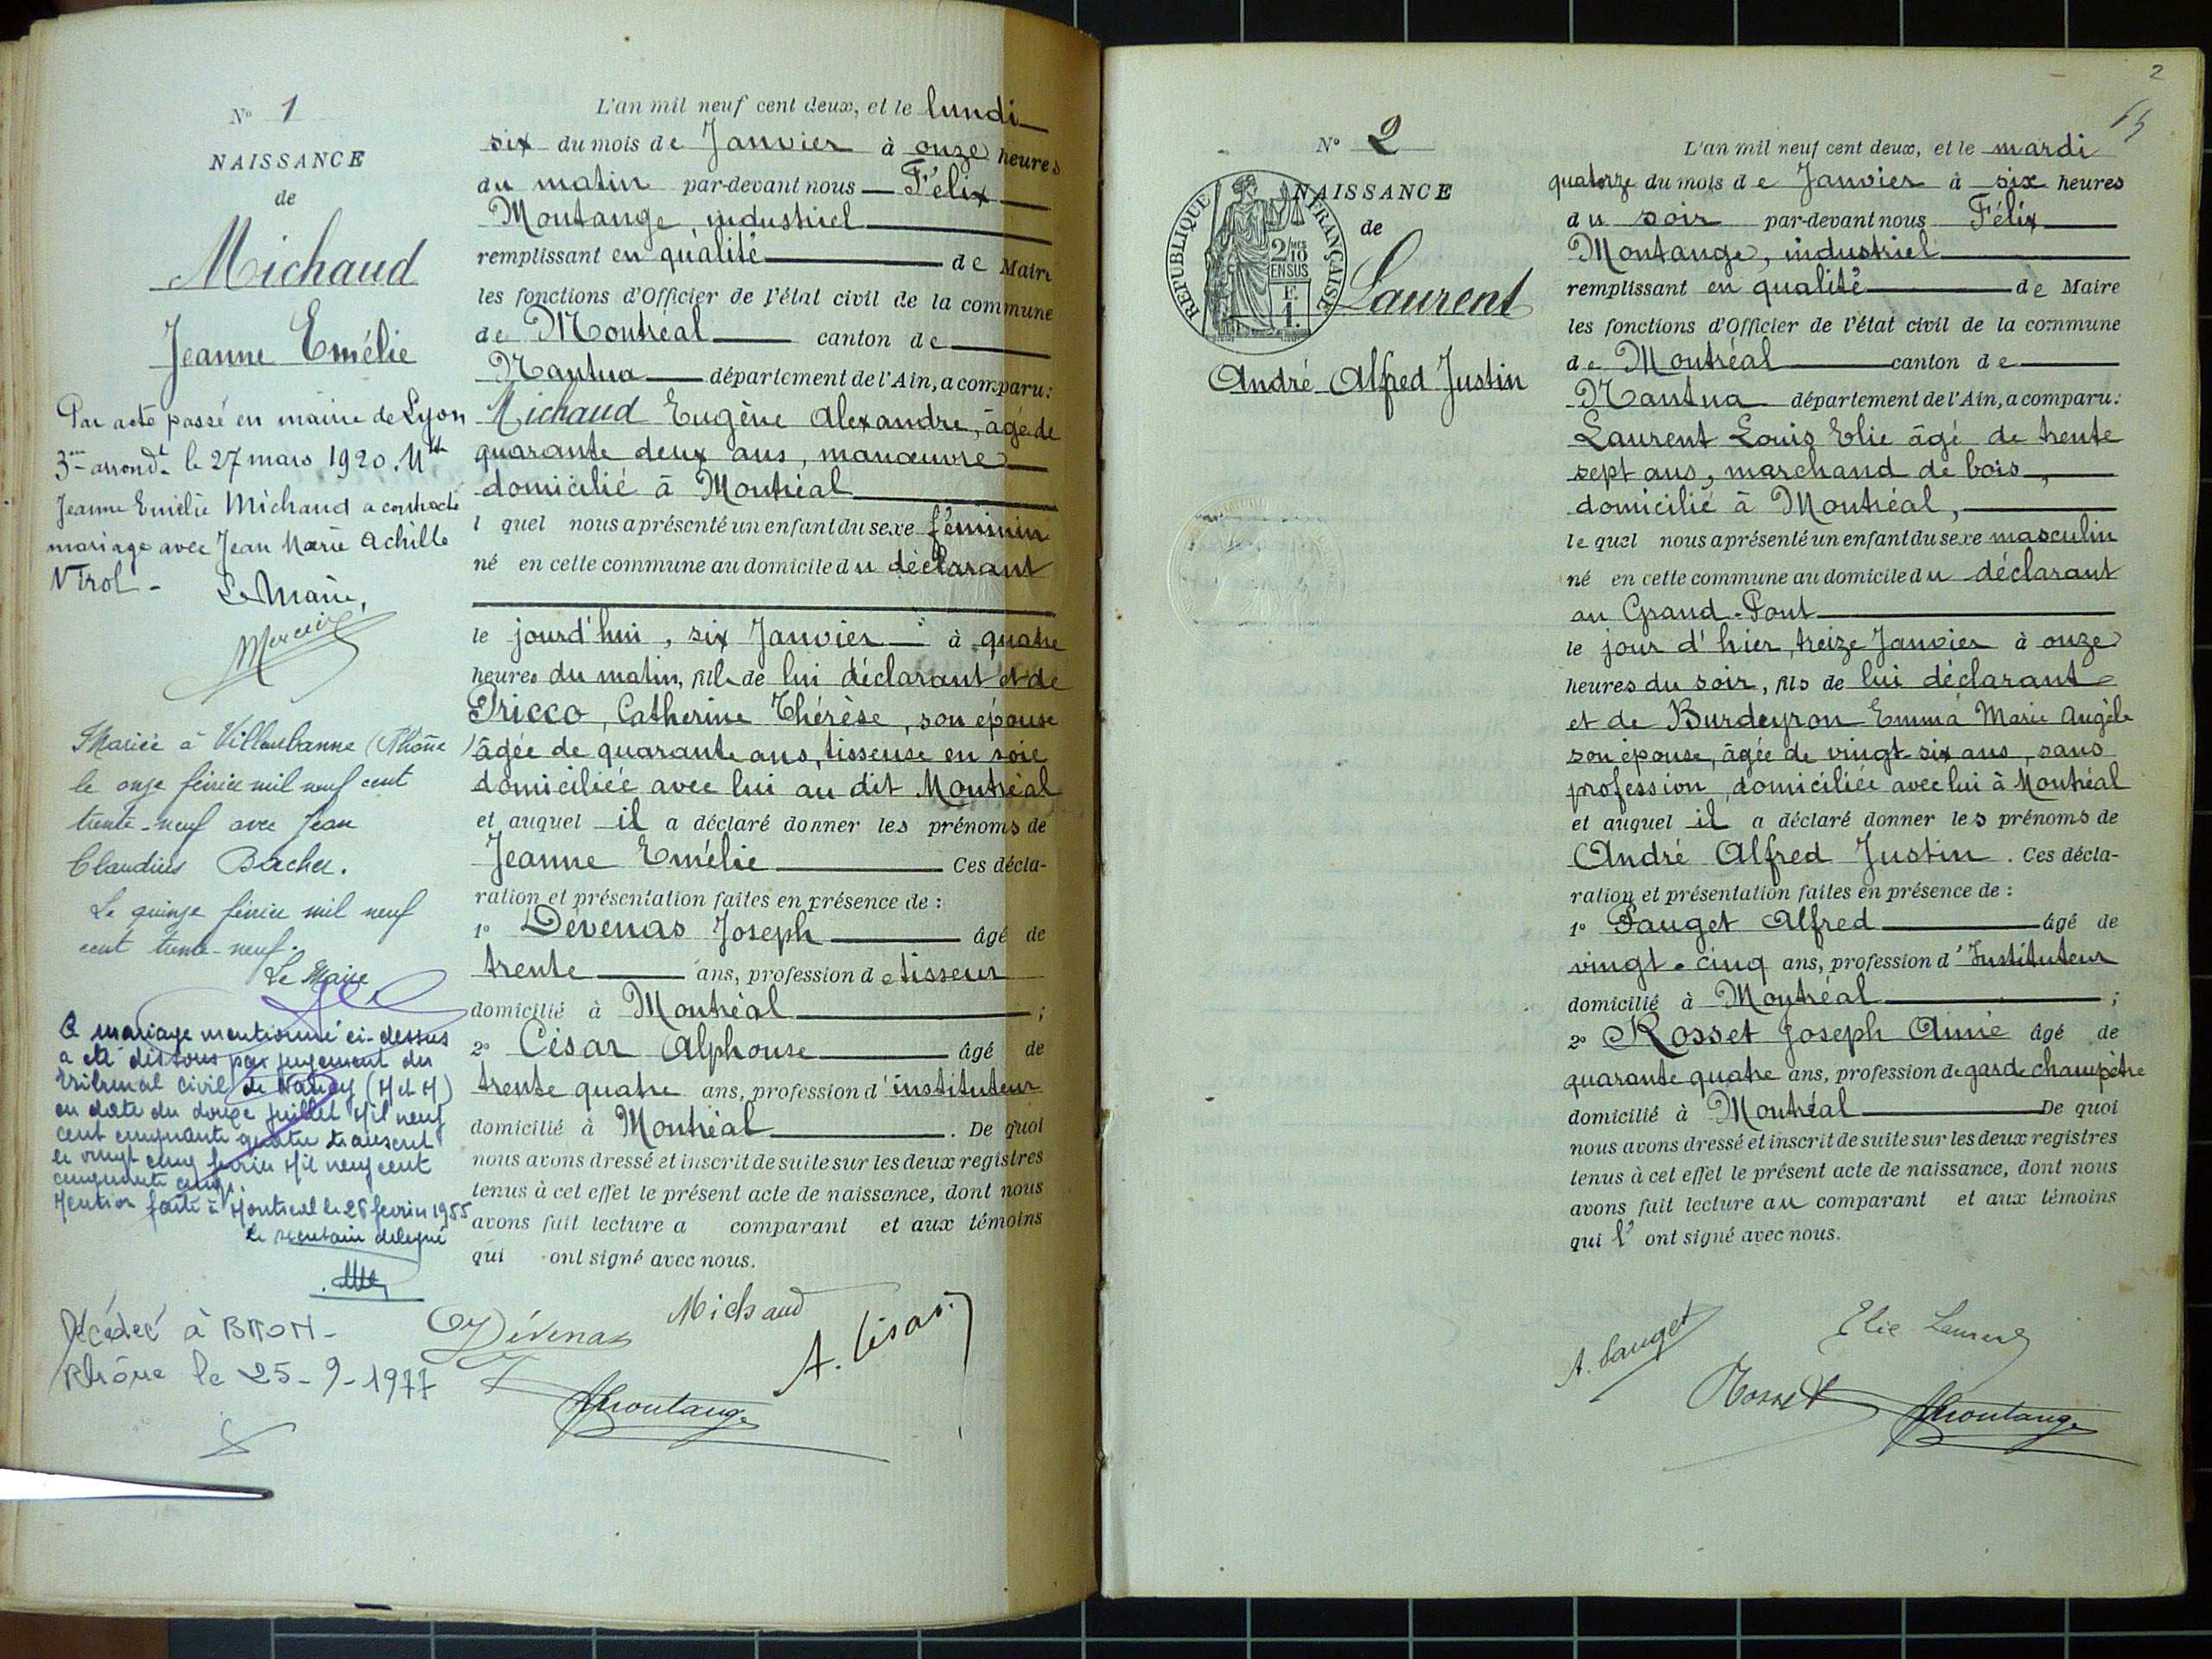 N° 1
NAISSANCE
de
Michaud
Jeanne Emélie
Par acte passé en mairie de Lyon
3me arrondt le 27 mars 1920. Mlle
Jeanne Emélie Michaud a contracté
mariage avec Jean Marie Achille
Virot -
Le Maire,
Mariée à Villeurbanne (Rhône)
le onze février mil neuf cent
trente-neuf avec Jean
Claudius Bacher.
Le quinze février mil neuf
cent trente-neuf.
Le Maire
Ce mariage mentionné ci-dessus
a été dissous par jugement du
tribunal civil de Nancy (M et M)
en date du douze juillet Mil neuf
cent cinquante quatre transcrit
le vingt cinq février Mil neuf cent
cinquante cinq.
Mention faite à Montréal le 26 février 1955
le secrétaire délégué
Décédée à BRON -
Rhône le 25-9-1977
L'an mil neuf cent deux, et le lundi
six du mois de Janvier à onze heures
du matin par-devant nous Félix
Montange, industriel
remplissant en qualité de Maire
les fonctions d'Officier de l'état civil de la commune
de Montréal canton de
Nantua département de l'Ain, a comparu:
Michaud Eugène Alexandre, âgé de
quarante deux ans, manœuvre
domicilié à Montréal
l quel nous a présenté un enfant du sexe féminin
né en cette commune au domicile du déclarant
le jourd'hui, six Janvier à quatre
heures du matin, fille de lui déclarant et de
Pricco, Catherine Thérèse, son épouse
âgée de quarante ans, tisseuse en soie
domiciliée avec lui au dit Montréal
et auquel il a déclaré donner les prénoms de
Jeanne Emélie Ces décla-
ration et présentation faites en présence de :
1° Dévenas Joseph âgé de
trente ans, profession de tisseur
domicilié à Montréal ;
2° César Alphonse âgé de
trente quatre ans, profession d'instituteur
domicilié à Montréal . De quoi
nous avons dressé et inscrit de suite sur les deux registres
tenus à cet effet le présent acte de naissance, dont nous
avons fait lecture a comparant et aux témoins
qui ont signé avec nous.
Dévenas
Michaud
A. César
FMontange
2
N° 2
NAISSANCE
de
RÉPUBLIQUE FRANÇAISE
2/10
EN SUS
F.
1.
Laurent
André Alfred Justin
L'an mil neuf cent deux, et le mardi
quatorze du mois de Janvier à six heures
du soir par-devant nous Félix
Montange, industriel
remplissant en qualité de Maire
les fonctions d'Officier de l'état civil de la commune
de Montréal canton de
Nantua département de l'Ain, a comparu:
Laurent Louis Elie âgé de trente
sept ans, marchand de bois,
domicilié à Montréal,
le quel nous a présenté un enfant du sexe masculin
né en cette commune au domicile du déclarant
au Grand-Pont
le jour d'hier, treize Janvier à onze
heures du soir, fils de lui déclarant
et de Burdeyron Emma Marie Angèle
son épouse, âgée de vingt-six ans, sans
profession, domiciliée avec lui à Montréal
et auquel il a déclaré donner les prénoms de
André Alfred Justin . Ces décla-
ration et présentation faites en présence de :
1° Sauget Alfred âgé de
vingt-cinq ans, profession d'Instituteur
domicilié à Montréal ;
2° Rosset Joseph Aimé âgé de
quarante quatre ans, profession de garde champêtre
domicilié à Montréal De quoi
nous avons dressé et inscrit de suite sur les deux registres
tenus à cet effet le présent acte de naissance, dont nous
avons fait lecture au comparant et aux témoins
qui l' ont signé avec nous.
A. Sauget
Elie Laurent
Rosset
FMontange